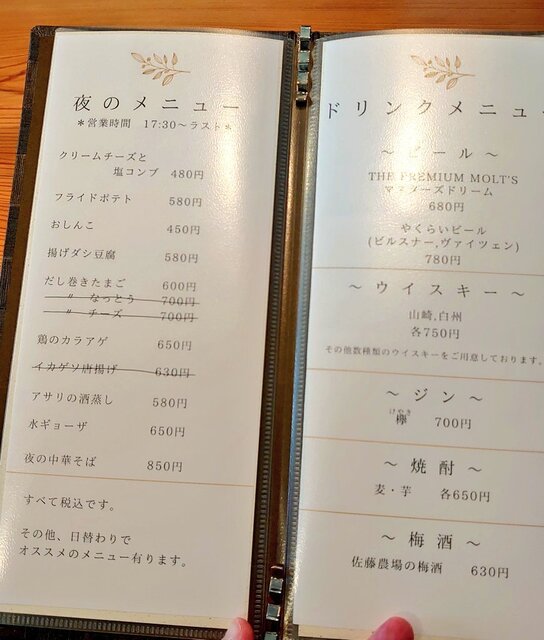 夜のメニュー
＊営業時間 17:30～ラスト＊
クリームチーズと
塩コンブ 480円
フライドポテト 580円
おしんこ 450円
揚げダシ豆腐 580円
だし巻きたまご 600円
〃 なっとう 700円
〃 チーズ 700円
鶏のカラアゲ 650円
イカゲソ唐揚げ 630円
アサリの酒蒸し 580円
水ギョーザ 650円
夜の中華そば 850円
すべて税込です。
その他、日替わりで
オススメのメニュー有ります。
ドリンクメニュー
～ビール～
THE PREMIUM MOLT'S
マスターズドリーム
680円
やくらいビール
(ピルスナー,ヴァイツェン)
780円
～ウイスキー～
山崎,白州
各750円
その他数種類のウイスキーをご用意しております。
～ジン～
けやき
欅 700円
～焼酎～
麦・芋 各650円
～梅酒～
佐藤農場の梅酒 630円